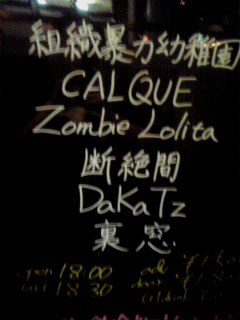 組織暴力幼稚園
CALQUE
Zombie Lolita
断絶間
DaKaTz
裏窓
open 18:00
start 18:30